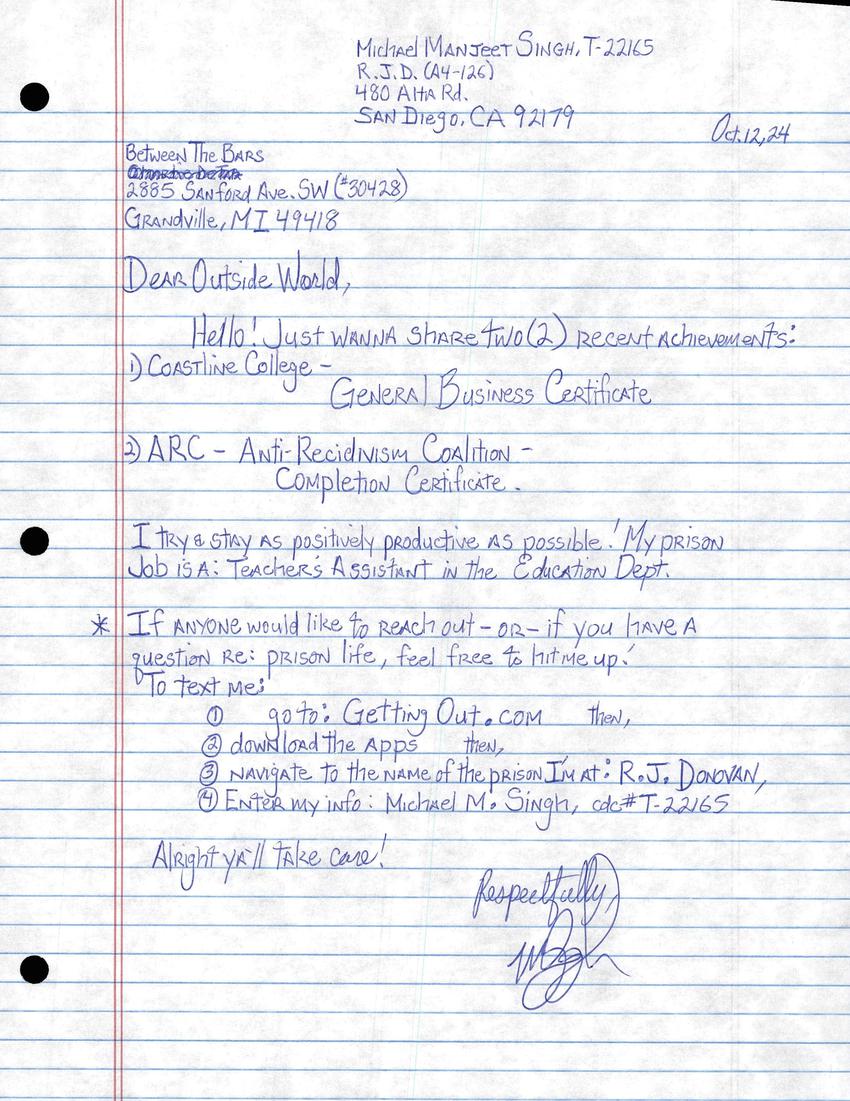 Michael Manjeet Singh, T-22165
R.J.D. (A4-126)
480 Alta Rd.
San Diego, CA 92179
Oct. 12, 24
Between The Bars
2885 Sanford Ave. SW (#30428)
Grandville, MI 49418
Dear Outside World,
Hello! Just wanna share two (2) recent achievements:
1) Coastline College -
General Business Certificate
2) ARC - Anti-Recidivism Coalition -
Completion Certificate.
I try & stay as positively productive as possible! My prison
job is a: Teacher's Assistant in the Education Dept.
* If anyone would like to reach out - or - if you have a
question re: prison life, feel free to hit me up!
To text me:
① go to: Getting Out.com then,
② download the apps then,
③ navigate to the name of the prison I'm at: R.J. Donovan,
④ Enter my info: Michael M. Singh, cdc# T-22165
Alright ya'll take care!
Respectfully,